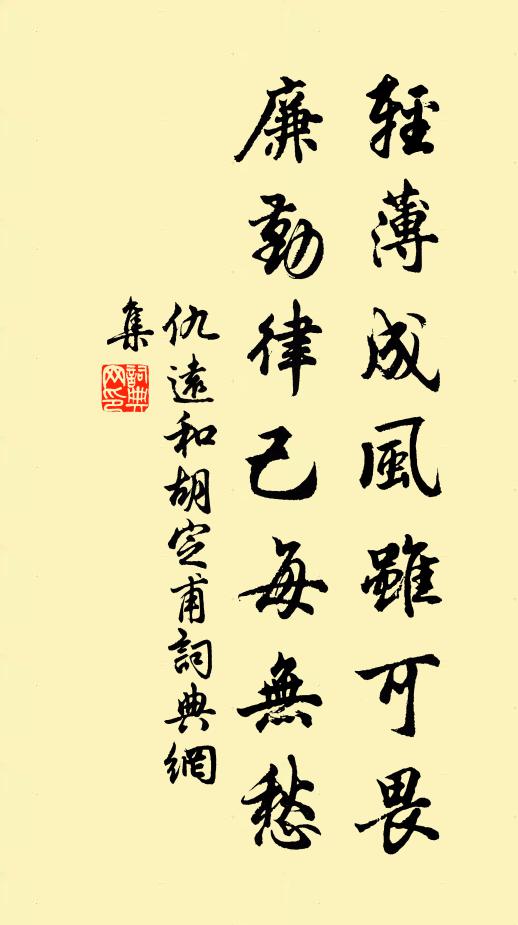 輕薄成風雖可畏
廉勤律己每無愁
仇遠和胡定甫詞典網
集
詞典網印